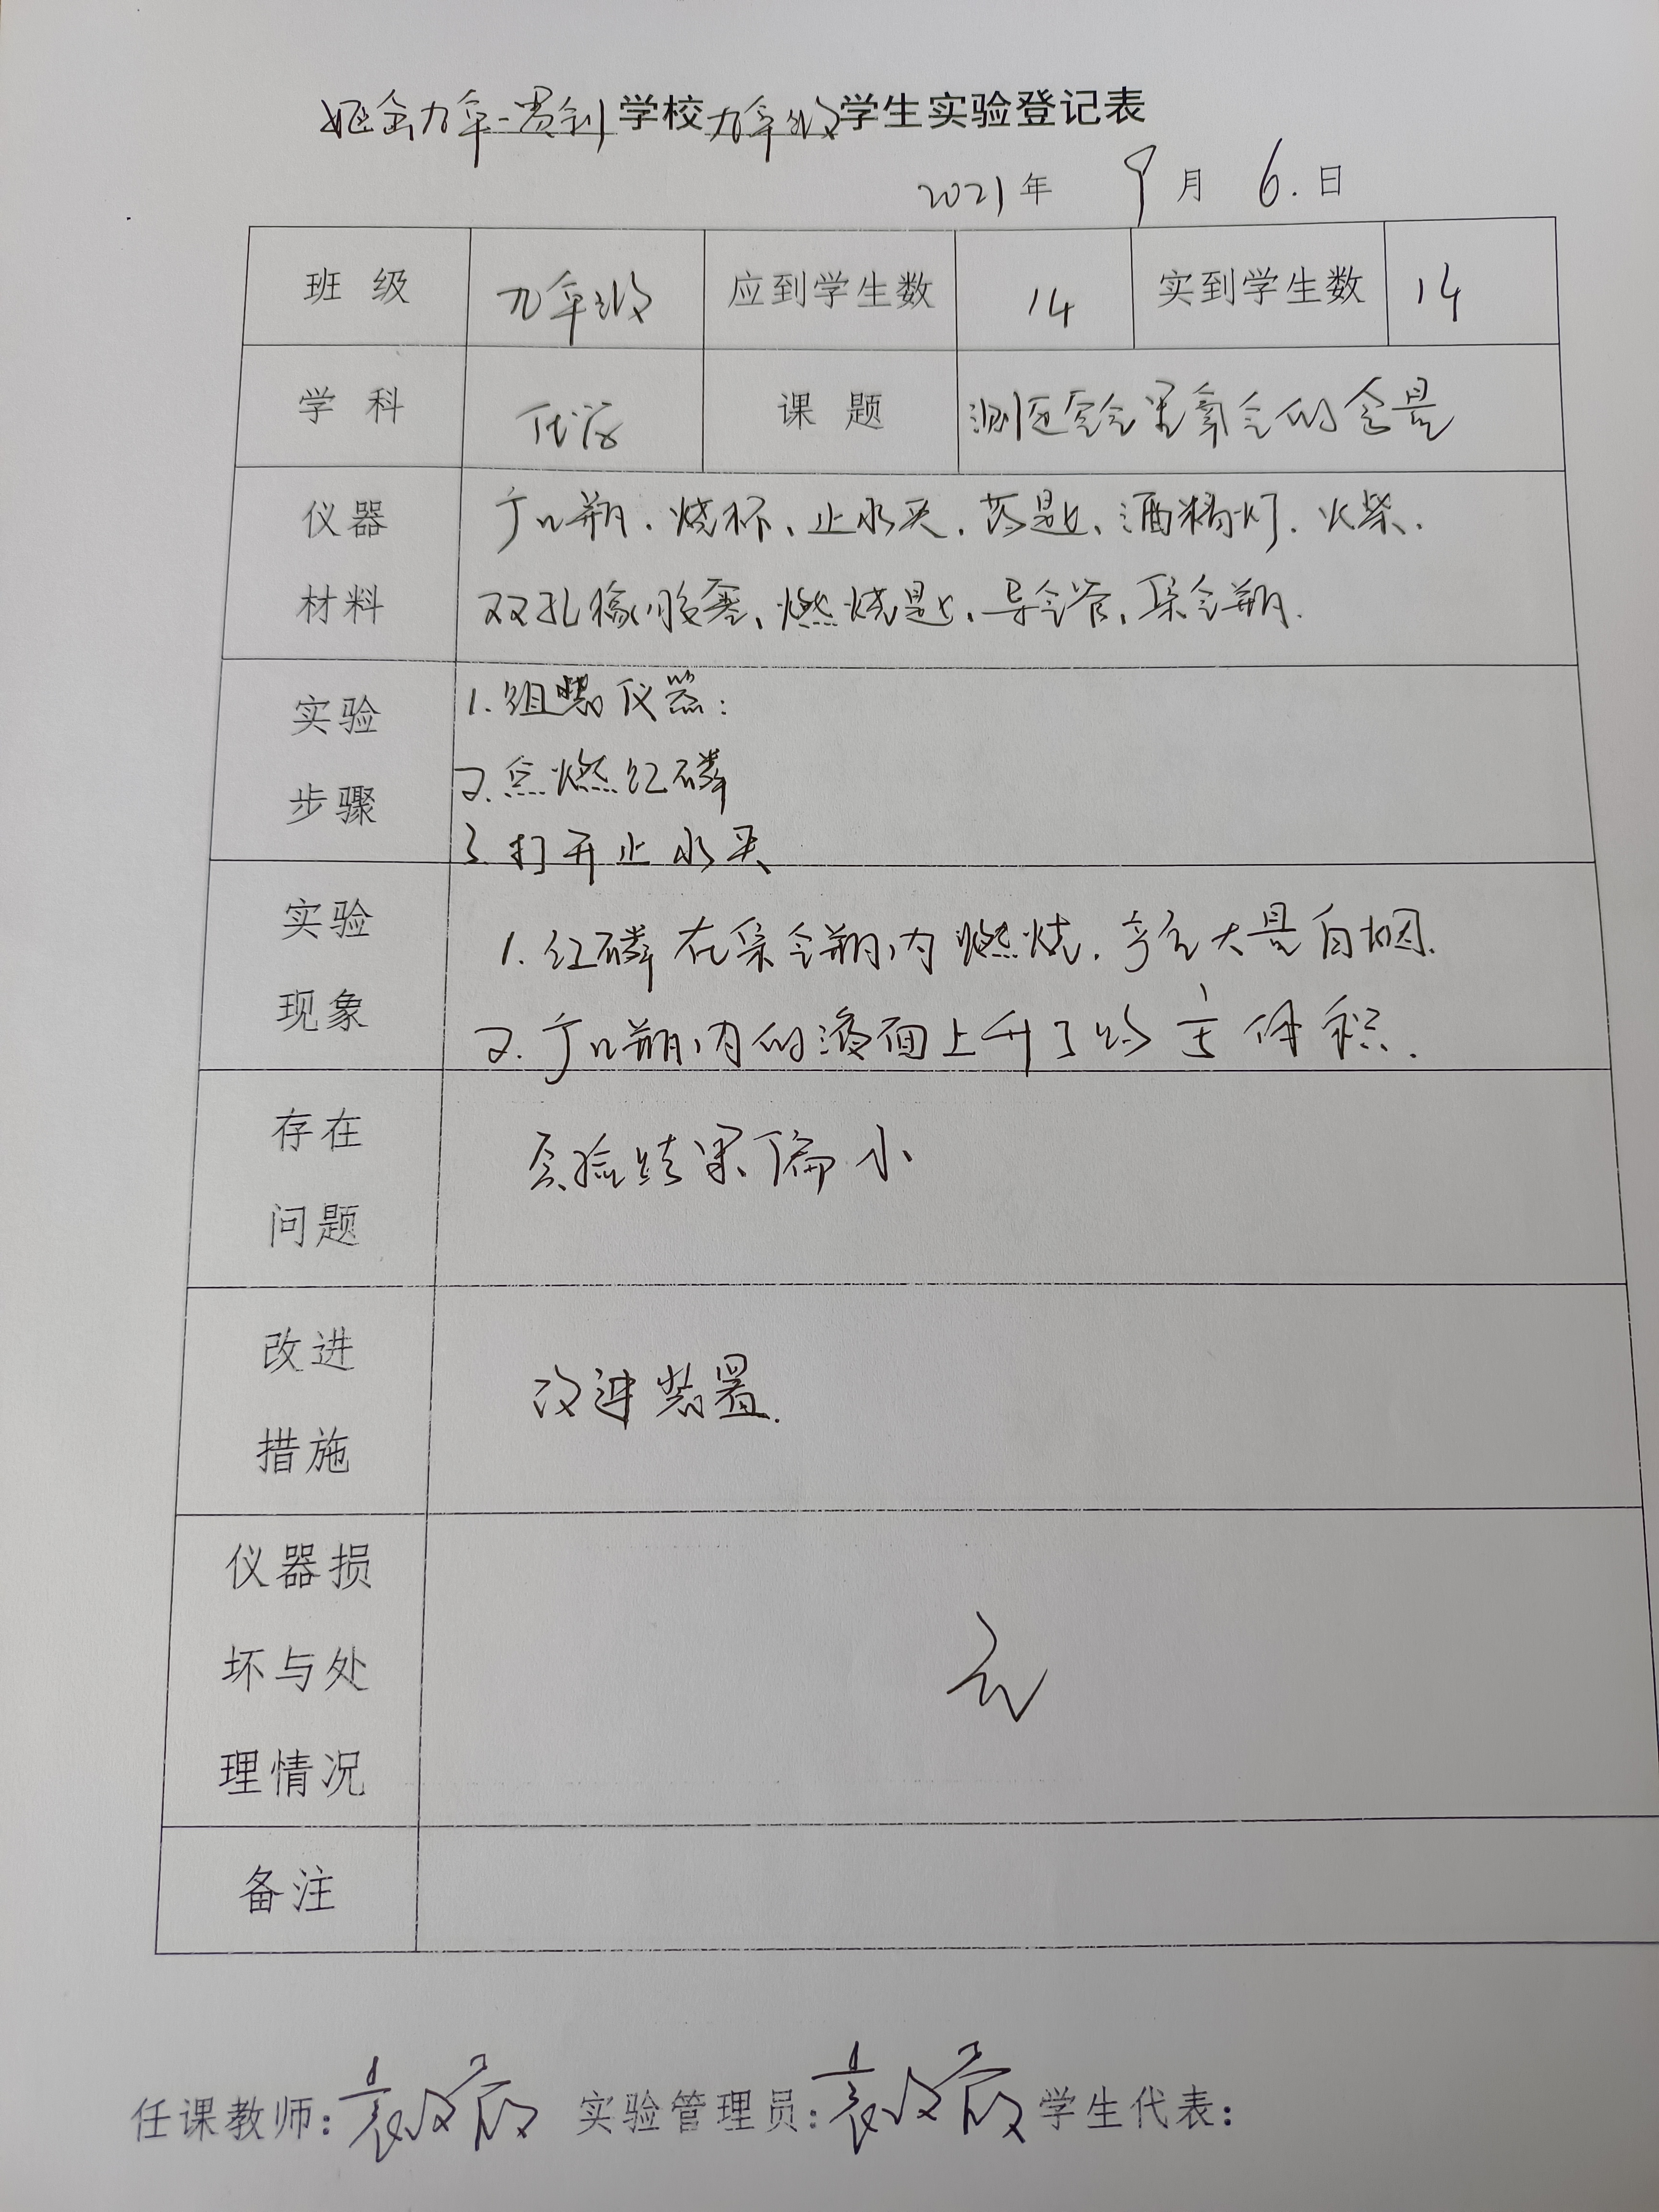 九年一贯制学校九年级学生实验登记表
2021年 9月 6.日
班 级 九年级 应到学生数 14 实到学生数 14
学 科 化学 课 题 测定空气里氧气的含量
仪器 广口瓶、烧杯、止水夹、药匙、酒精灯、火柴.
材料 双孔橡胶塞、燃烧匙、导气管、集气瓶.
实验 1.组装仪器:
2.点燃红磷
步骤
3.打开止水夹
实验 1.红磷在集气瓶内燃烧.产生大量白烟.
现象 2.广口瓶内的液面上升了约 1/5 体积.
存在 实验结果偏小
问题
改进 改进装置.
措施
仪器损
坏与处 无
理情况
备注
任课教师: 实验管理员: 学生代表: